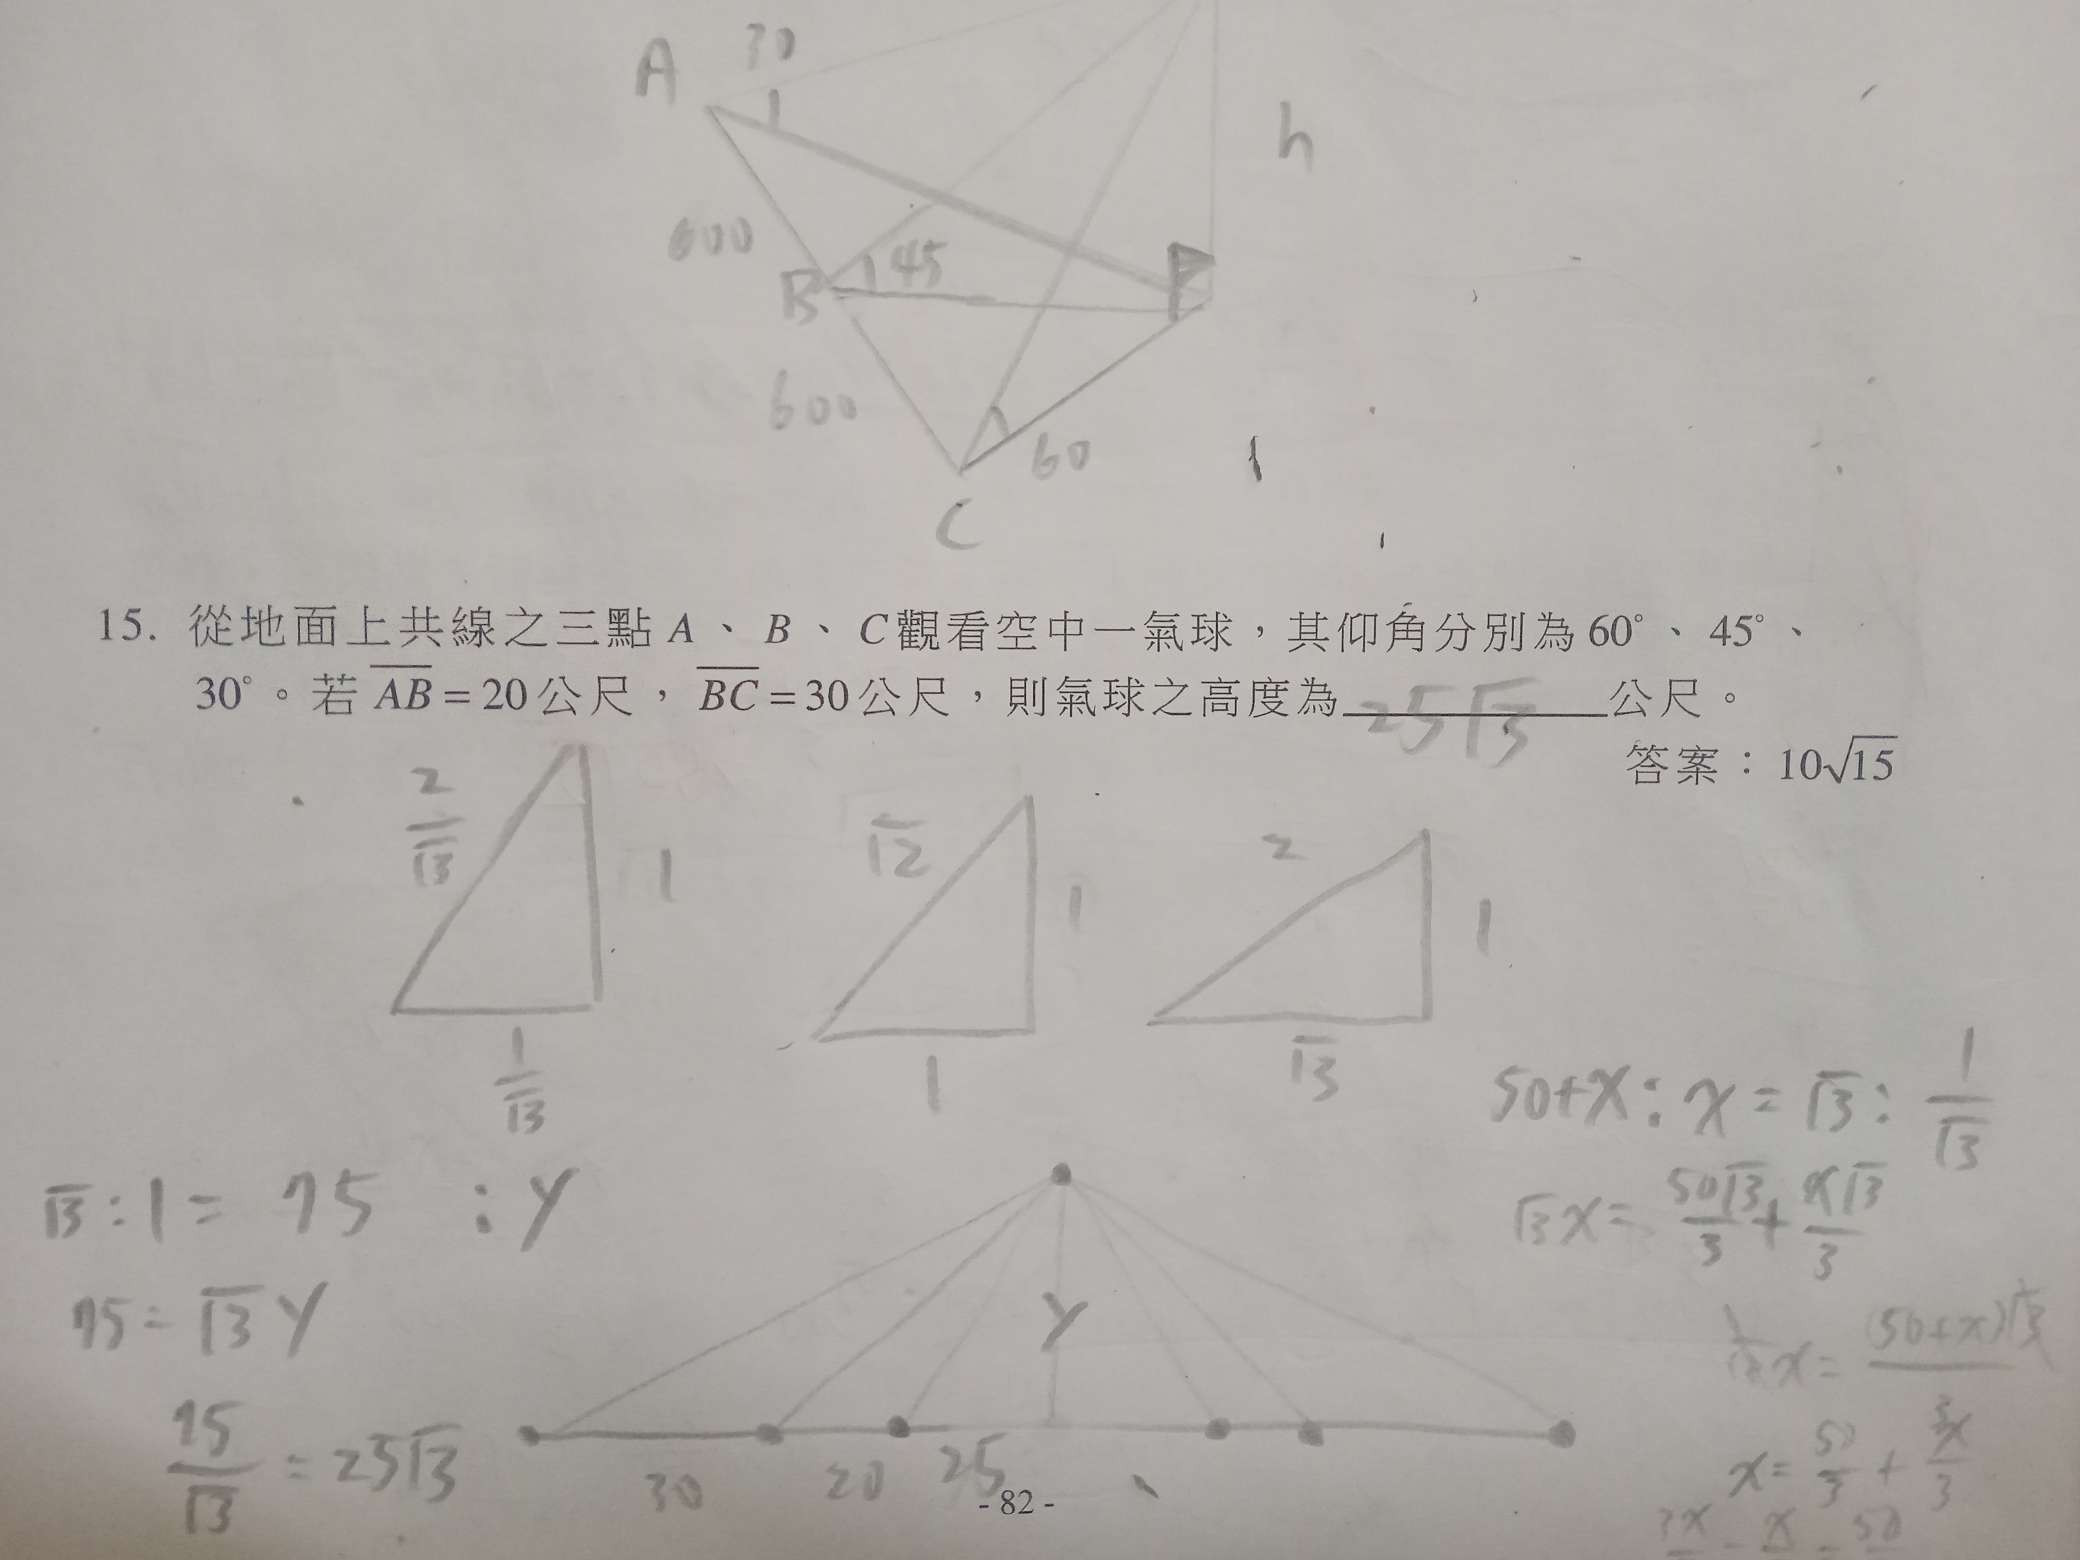 A 30
h
600
B 45 P
600
60
C
15. 從地面上共線之三點 A、B、C觀看空中一氣球，其仰角分別為 60°、45°、
30°。若 AB = 20公尺，BC = 30公尺，則氣球之高度為 25√3 公尺。
答案：10√15
2/√3 1
√2 1
2 1
1/√3
1
√3
50+x : x = √3 : 1/√3
√3 : 1 = 75 : y
√3x = 50√3/3 + x√3/3
75 = √3 y
y
x = 50/3 + x/3
75/√3 = 25√3
30 20 25
- 82 -